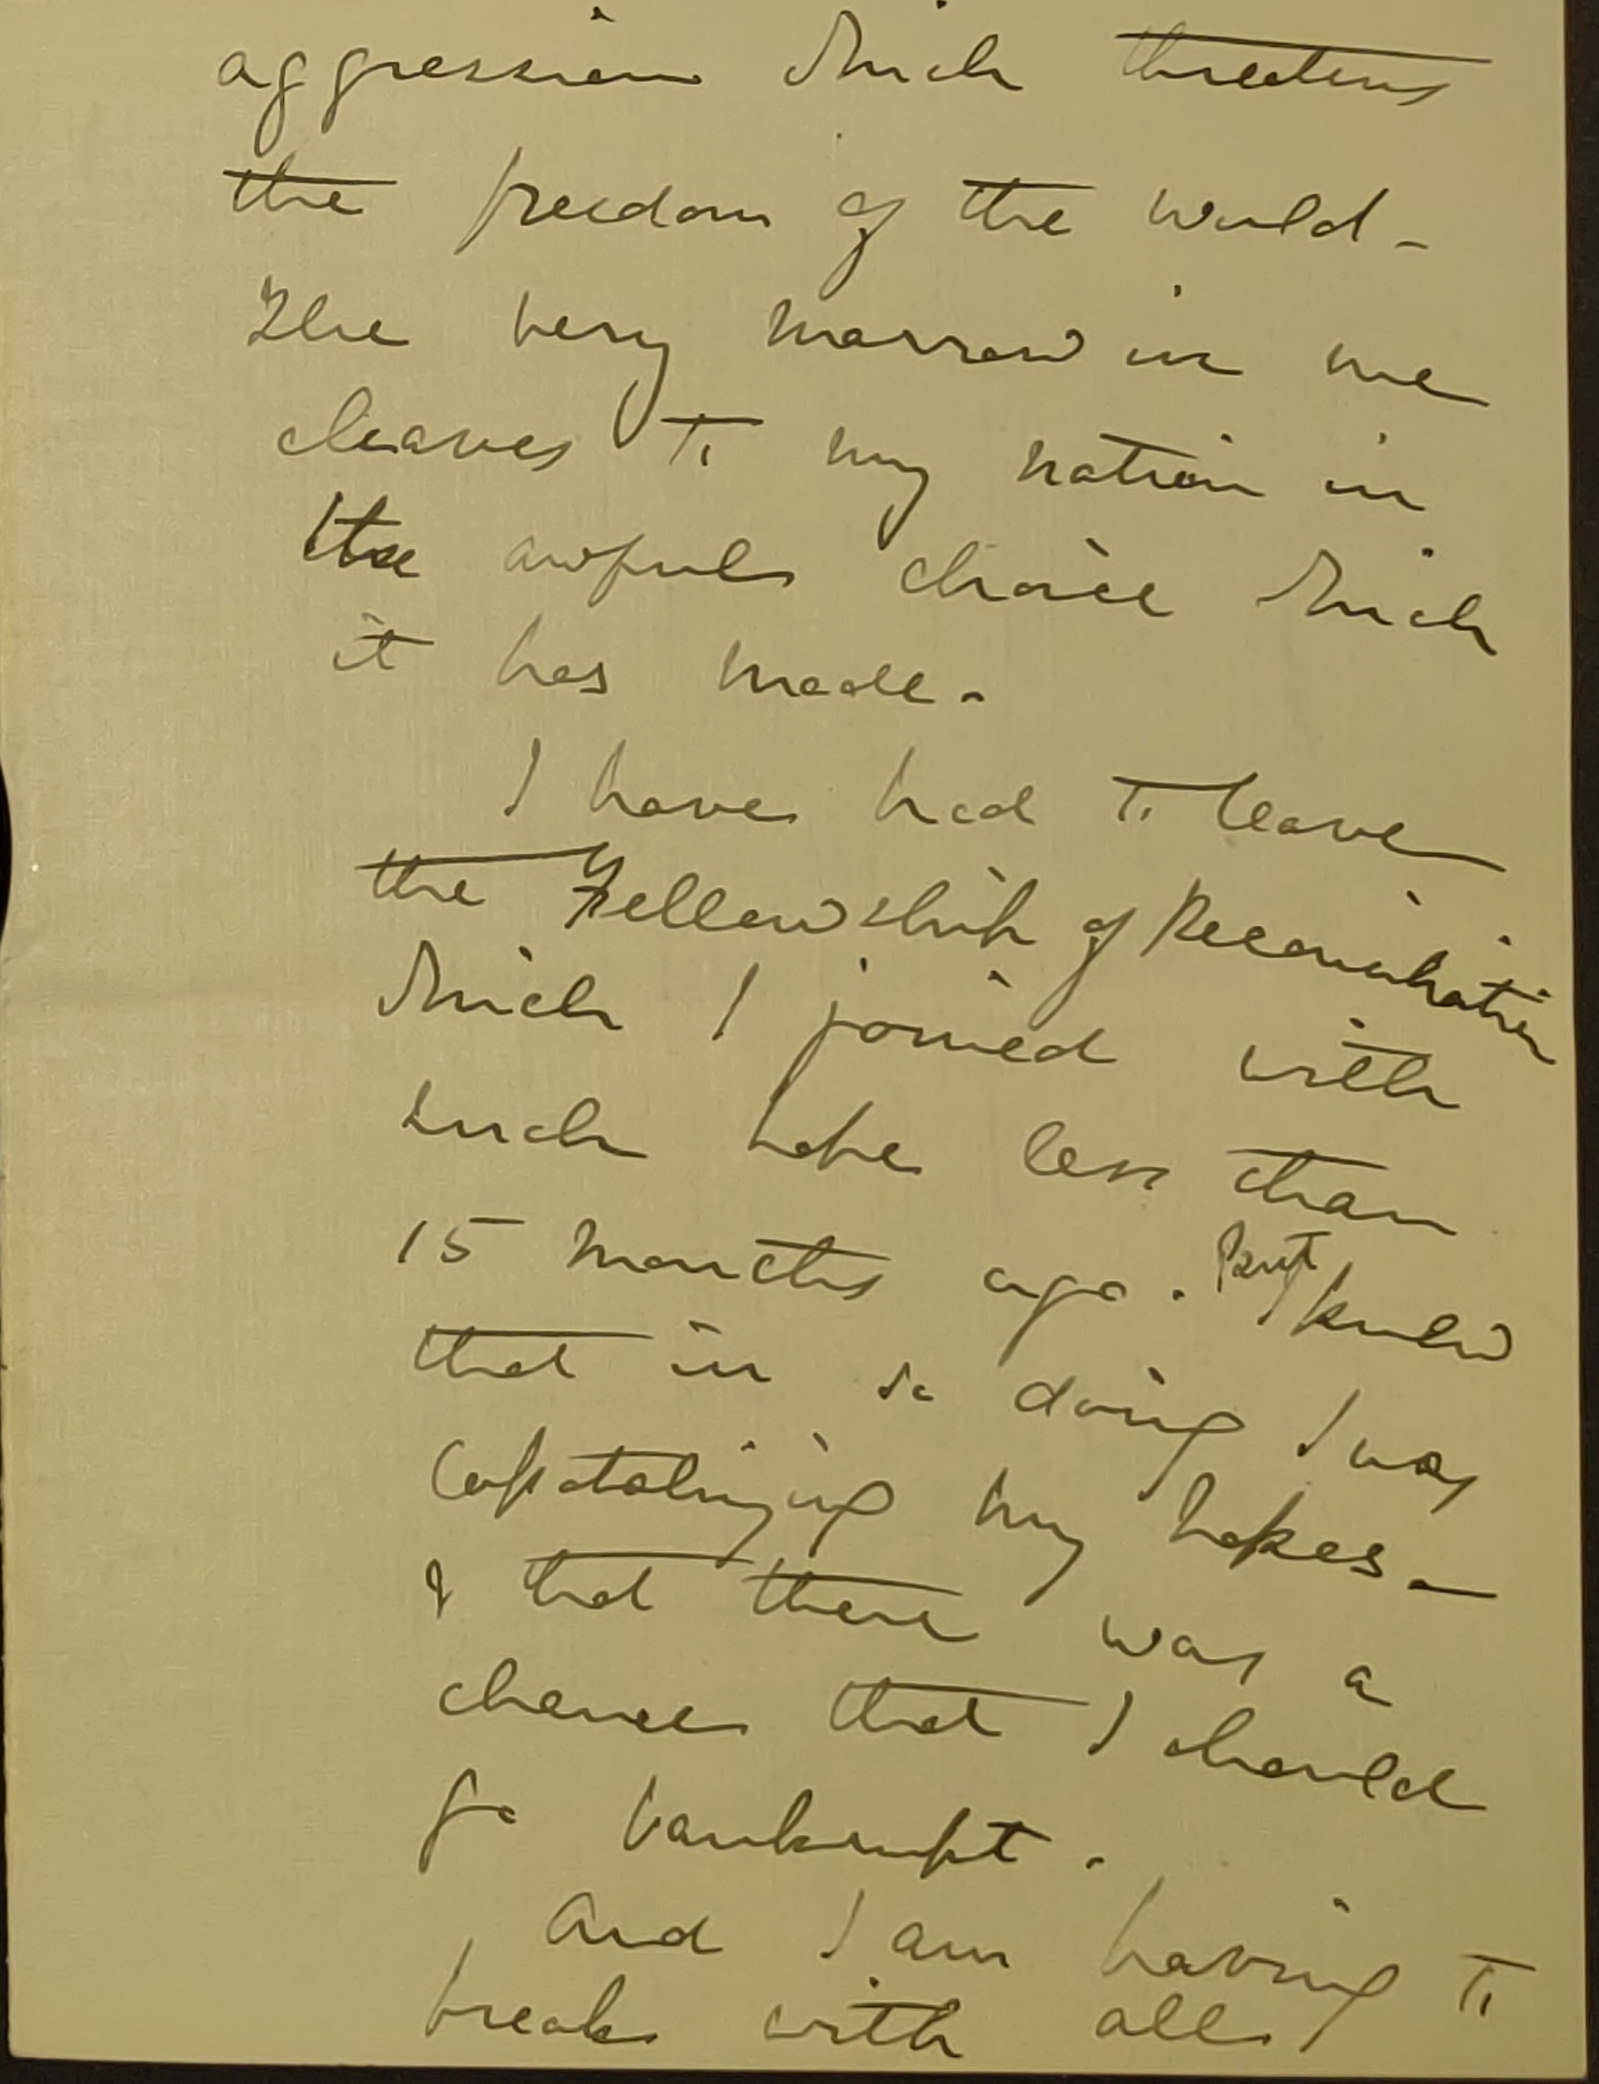 aggression which threatens
the freedom of the world -
The very marrow in me
cleaves to my nation in
the awful choice which
it has made.
I have had to leave
the Fellowship of Reconciliation
which I joined with
such hope less than
15 months ago. But I knew
that in so doing I was
capitalizing my hopes -
& that there was a
chance that I should
go bankrupt.
And I am having to
break with all